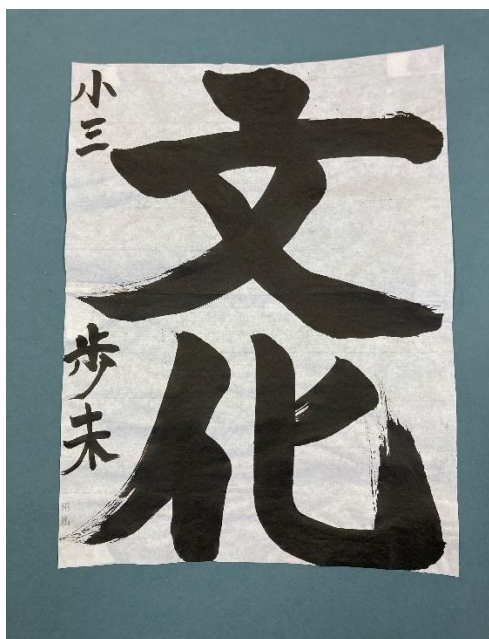 文化
小三 歩未